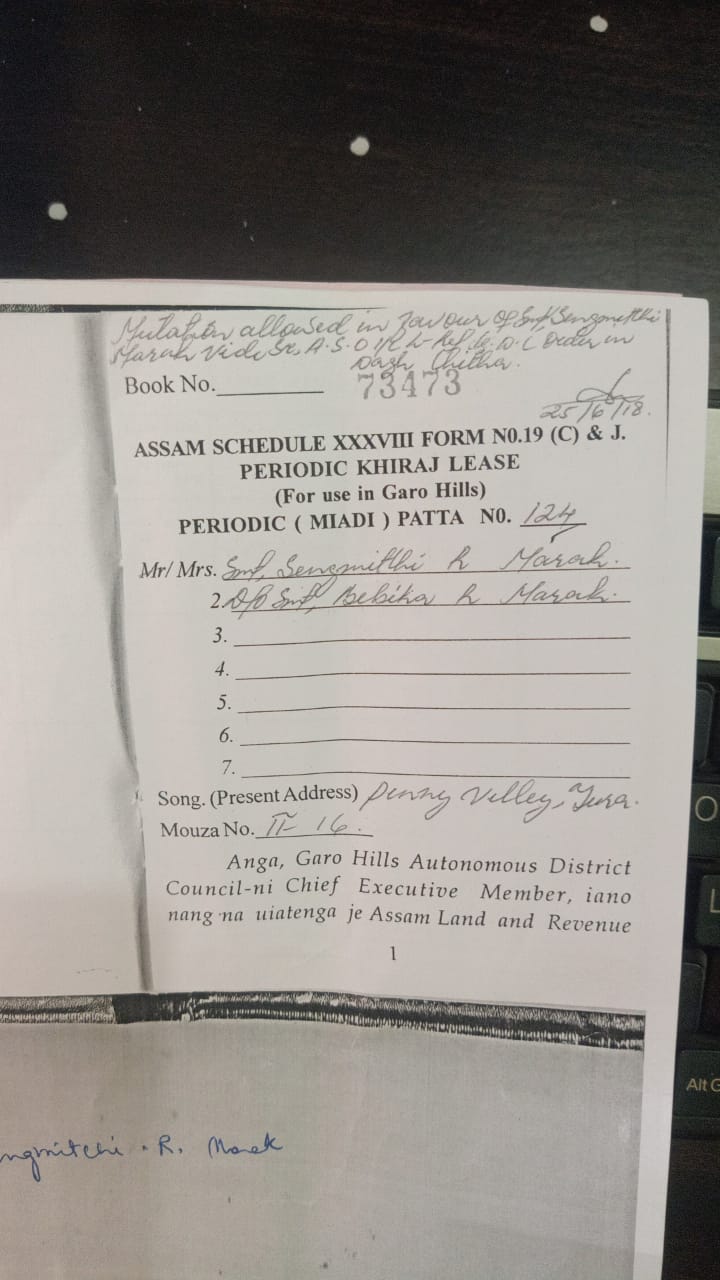 Mutation allowed in favour of Smt, Sengmitchi
Marak Vide Sr. A.S.O order in
Dagh Chitha.
Book No.
73473
25/6/18.
ASSAM SCHEDULE XXXVIII FORM N0.19 (C) & J.
PERIODIC KHIRAJ LEASE
(For use in Garo Hills)
PERIODIC ( MIADI ) PATTA N0. 124
Mr/ Mrs. Smt, Sengmitchi R Marak.
2. D/O Smt, Bebika R Marak.
3.
4.
5.
6.
7.
Song. (Present Address) Denny Velley, Tura.
Mouza No. II-16.
Anga, Garo Hills Autonomous District
Council-ni Chief Executive Member, iano
nang·na uiatenga je Assam Land and Revenue
1
ngmitchi . R. Marak
Alt G
O
L